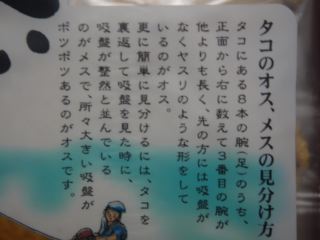 タコのオス、メスの見分け方
タコにある8本の腕(足)のうち、
正面から右に数えて3番目の腕が
他よりも長く、先の方には吸盤が
なくヤスリのような形をして
いるのがオス。
更に簡単に見分けるには、タコを
裏返して吸盤を見た時に、
吸盤が整然と並んでいる
のがメスで、所々大きい吸盤が
ポツポツあるのがオスです。